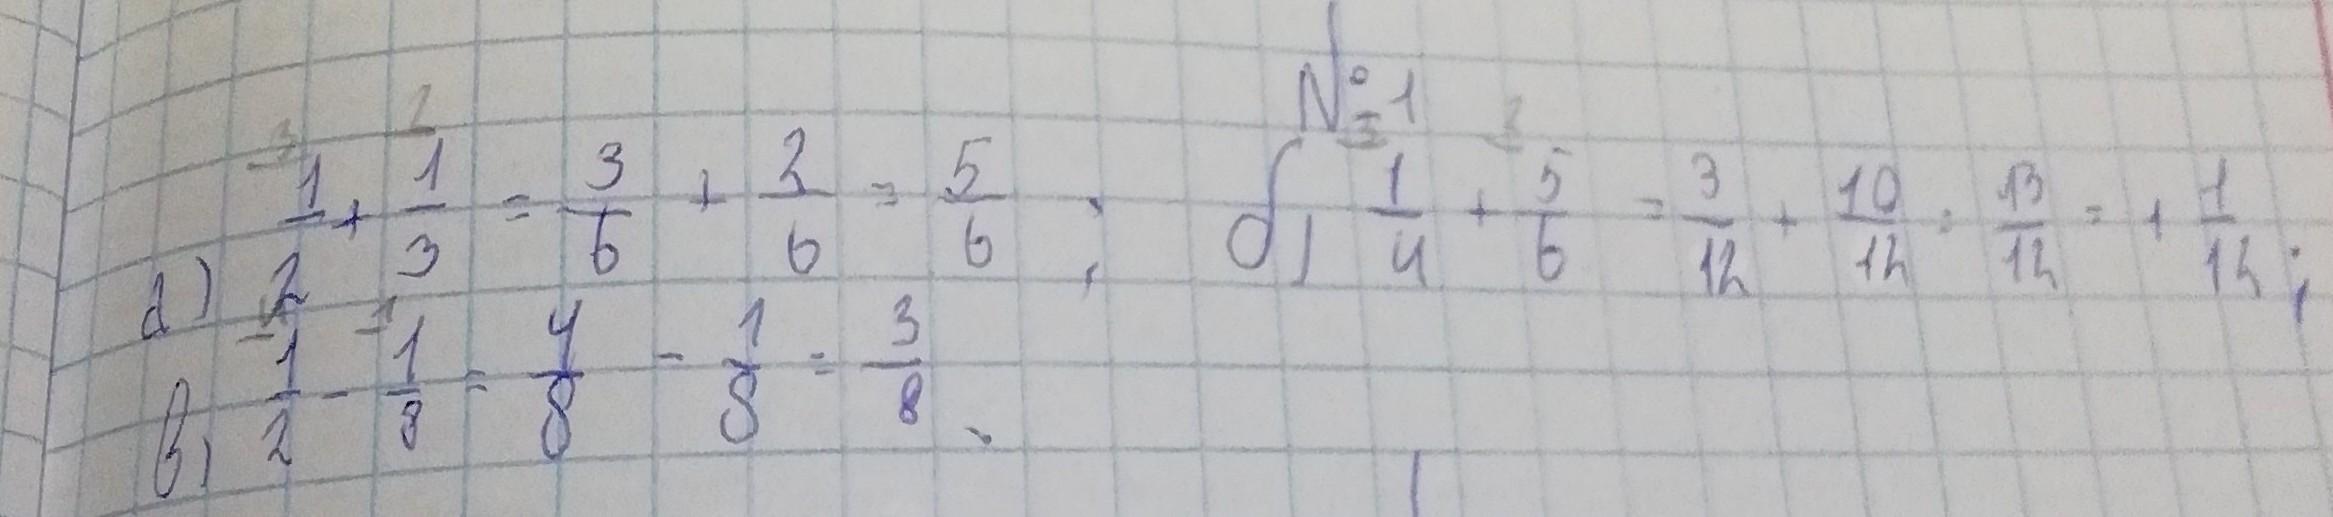 №1
а) 1/2 + 1/3 = 3/6 + 2/6 = 5/6 ; б) 1/4 + 5/6 = 3/12 + 10/12 = 13/12 = + 1/12 ;
в) 1/2 - 1/8 = 4/8 - 1/8 = 3/8 .